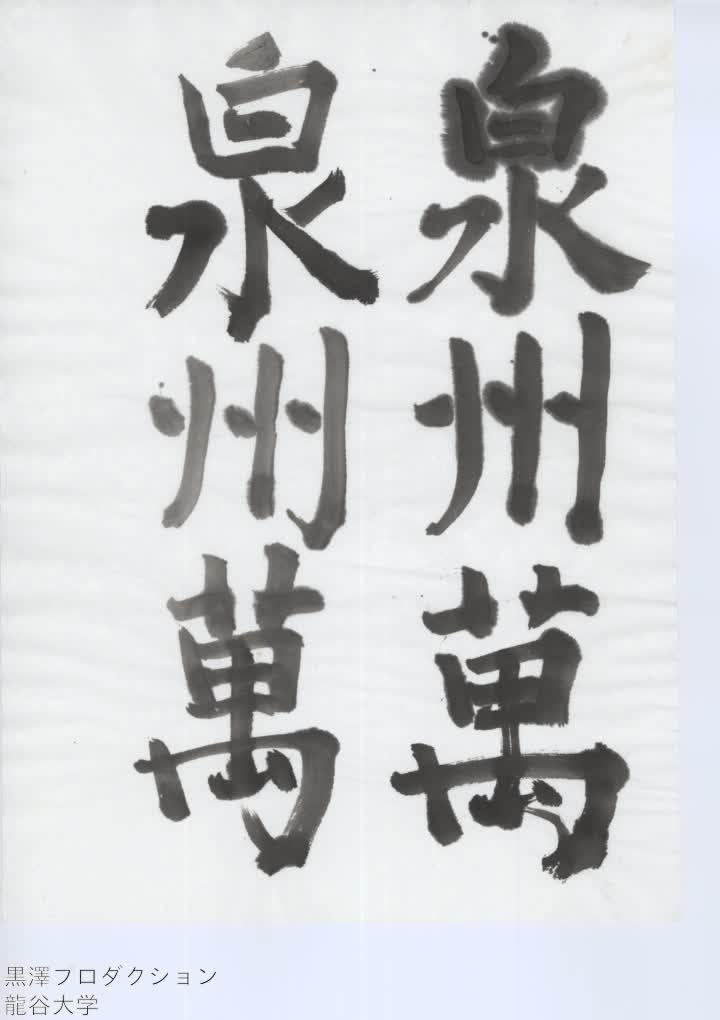 泉州萬
泉州萬
黒澤フロダクション
龍谷大学